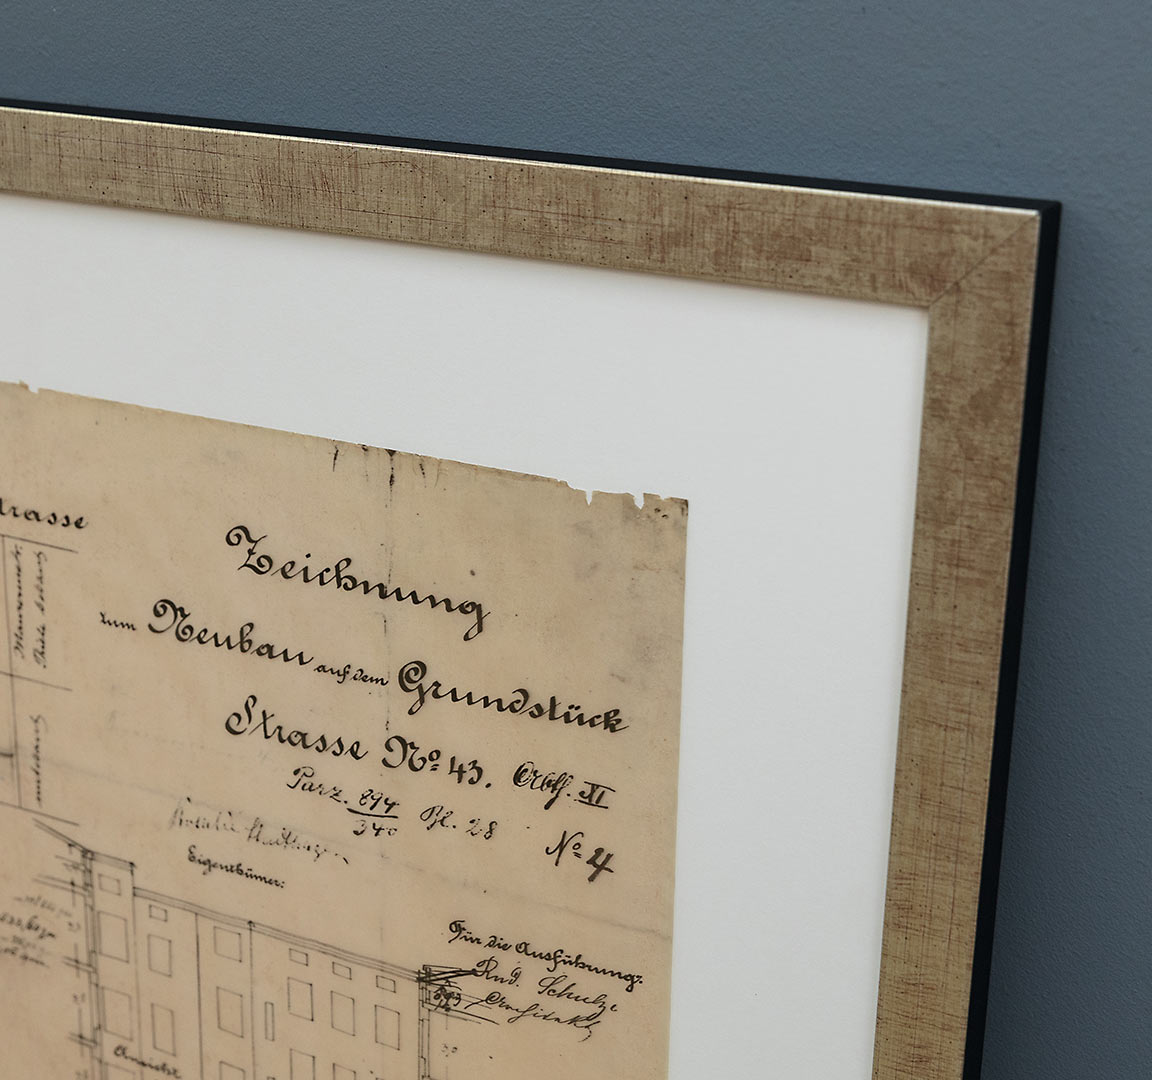 Strasse
Zeichnung
zum Neubau auf dem Grundstück
Strasse No 43. Abth. XI
Parz. 894/340 Bl. 28 No 4
Eigenthümer:
Für die Ausführung:
Rud. Schulze
Architekt
Ansicht